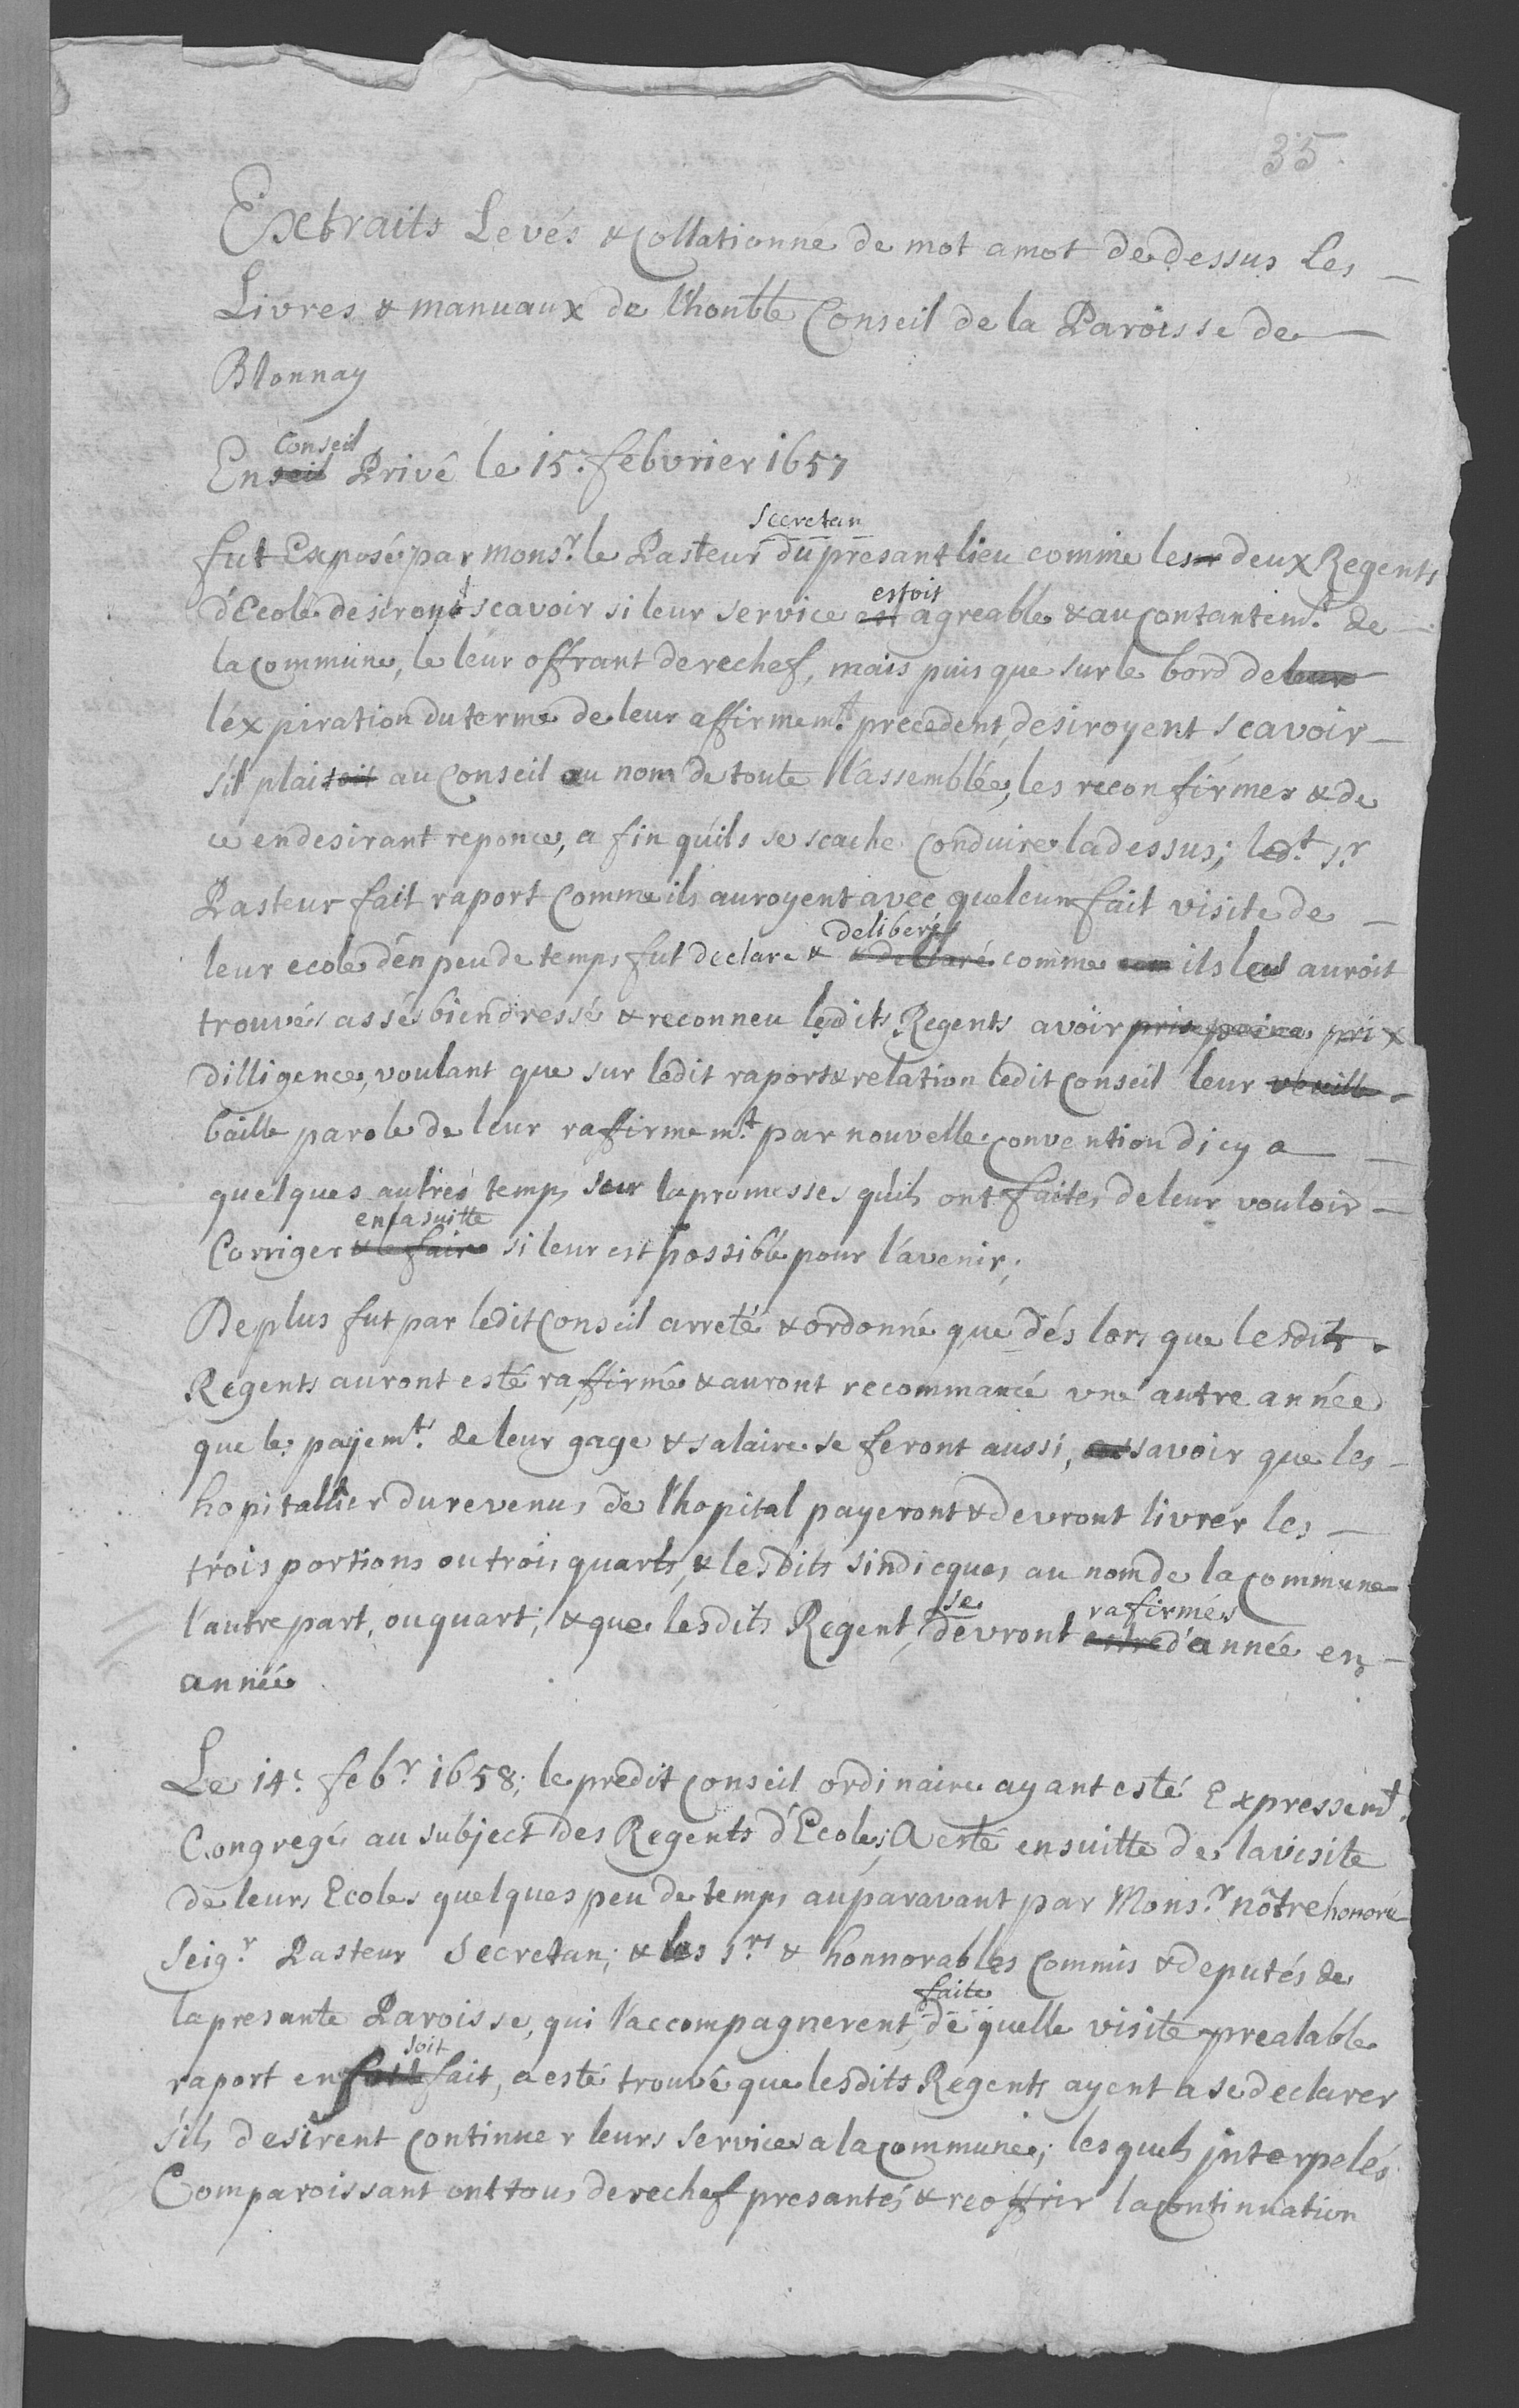 35.
Extraits Levés & Collationné de mot a mot de dessus Les
Livres & manuaux de l'honble Conseil de la Paroisse de
Blonnay
Conseil
En seil Privé le 15.e febvrier 1657
Secretan
fut Exposé par mons.r le Pasteur du presant lieu comme les deux Regents
estoit
d'Ecole desiront scavoir si leur service est agreable & au contantem.t de
la commune, le leur offrant derechef, mais puis que sur le bord de leur
l'expiration du terme de leur affirmem.t precedent, desiroyent scavoir
s'il plaisoit au Conseil au nom de toute l'assemblée, les reconfirmer & de
ce en desirant reponce, a fin qu'ils se scache conduire la dessus; led.t s.r
Pasteur fait raport comme ils auroyent avec quelcun fait visite de
deliberé
leur ecole d'en peu de temps fut declare & & declaré comme ils les auroit
trouvés assés bien dressé & reconneu ledits Regents avoir prise peine prix
dilligence, voulant que sur ledit raport & relation ledit Conseil leur veuille
baille parole de leur raffirmem.t par nouvelle convention d'icy a
quelques autres temps sur la promesses qu'ils ont faites de leur vouloir
en la suitte
Corriger & le faire si leur est possible pour l'avenir;
De plus fut par ledit Conseil arreté & ordonné que dés lors que lesdits
Regents auront esté raffirmé & auront recommancé une autre année
que le payem.t de leur gage & salaire se feront aussi, savoir que les
hopitallier du revenus de l'hopital payeront & devront livrer les
trois portions ou trois quarts, & lesdits sindicques au nom de la commune
se rafirmés
l'autre part, ou quart; & que lesdits Regent, devront estre d'année en
année
Le 14.e febr 1658; le predit Conseil ordinaire ayant esté Expressemt.
Congregé au subject des Regents d'Ecole; A esté ensuitte de la visite
de leurs Ecoles quelques peu de temps auparavant par Mons.r nôtre honoré
Seig.r Pasteur Secretan; & les s.rs & honnorables Commis & deputés de
faite
la presante Paroisse, qui l'accompagnerent, de quelle visite prealable
soit
raport en fait, a esté trouvé que lesdits Regents ayent a se declarer
s'ils desirent continuer leurs services a la commune; lesquels interpelés
Comparoissant ont tous derechef presantés & reoffrir la continuation